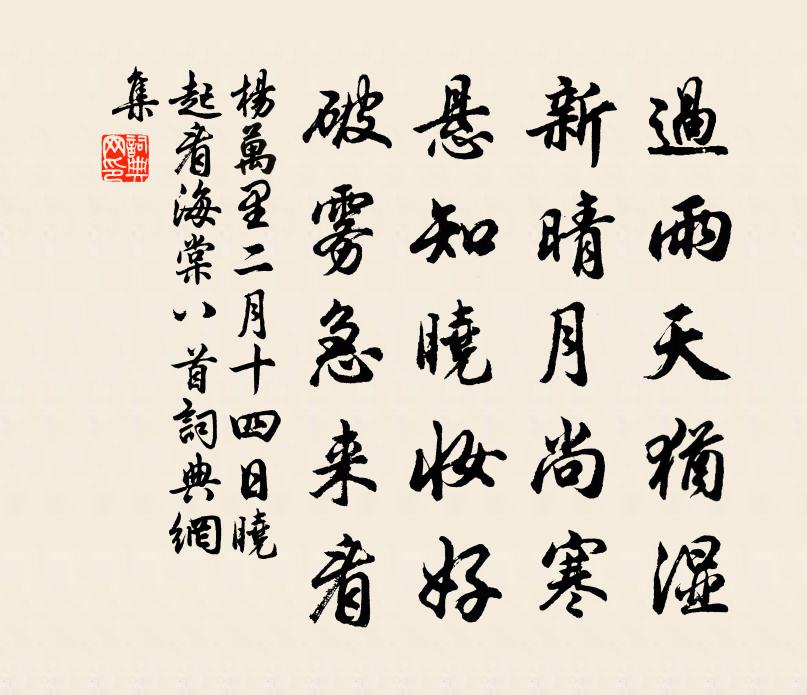 過雨天猶濕
新晴月尚寒
悬知曉妝好
破雾急来看
楊萬里二月十四日曉
起看海棠八首詞典網
集
詞典網印